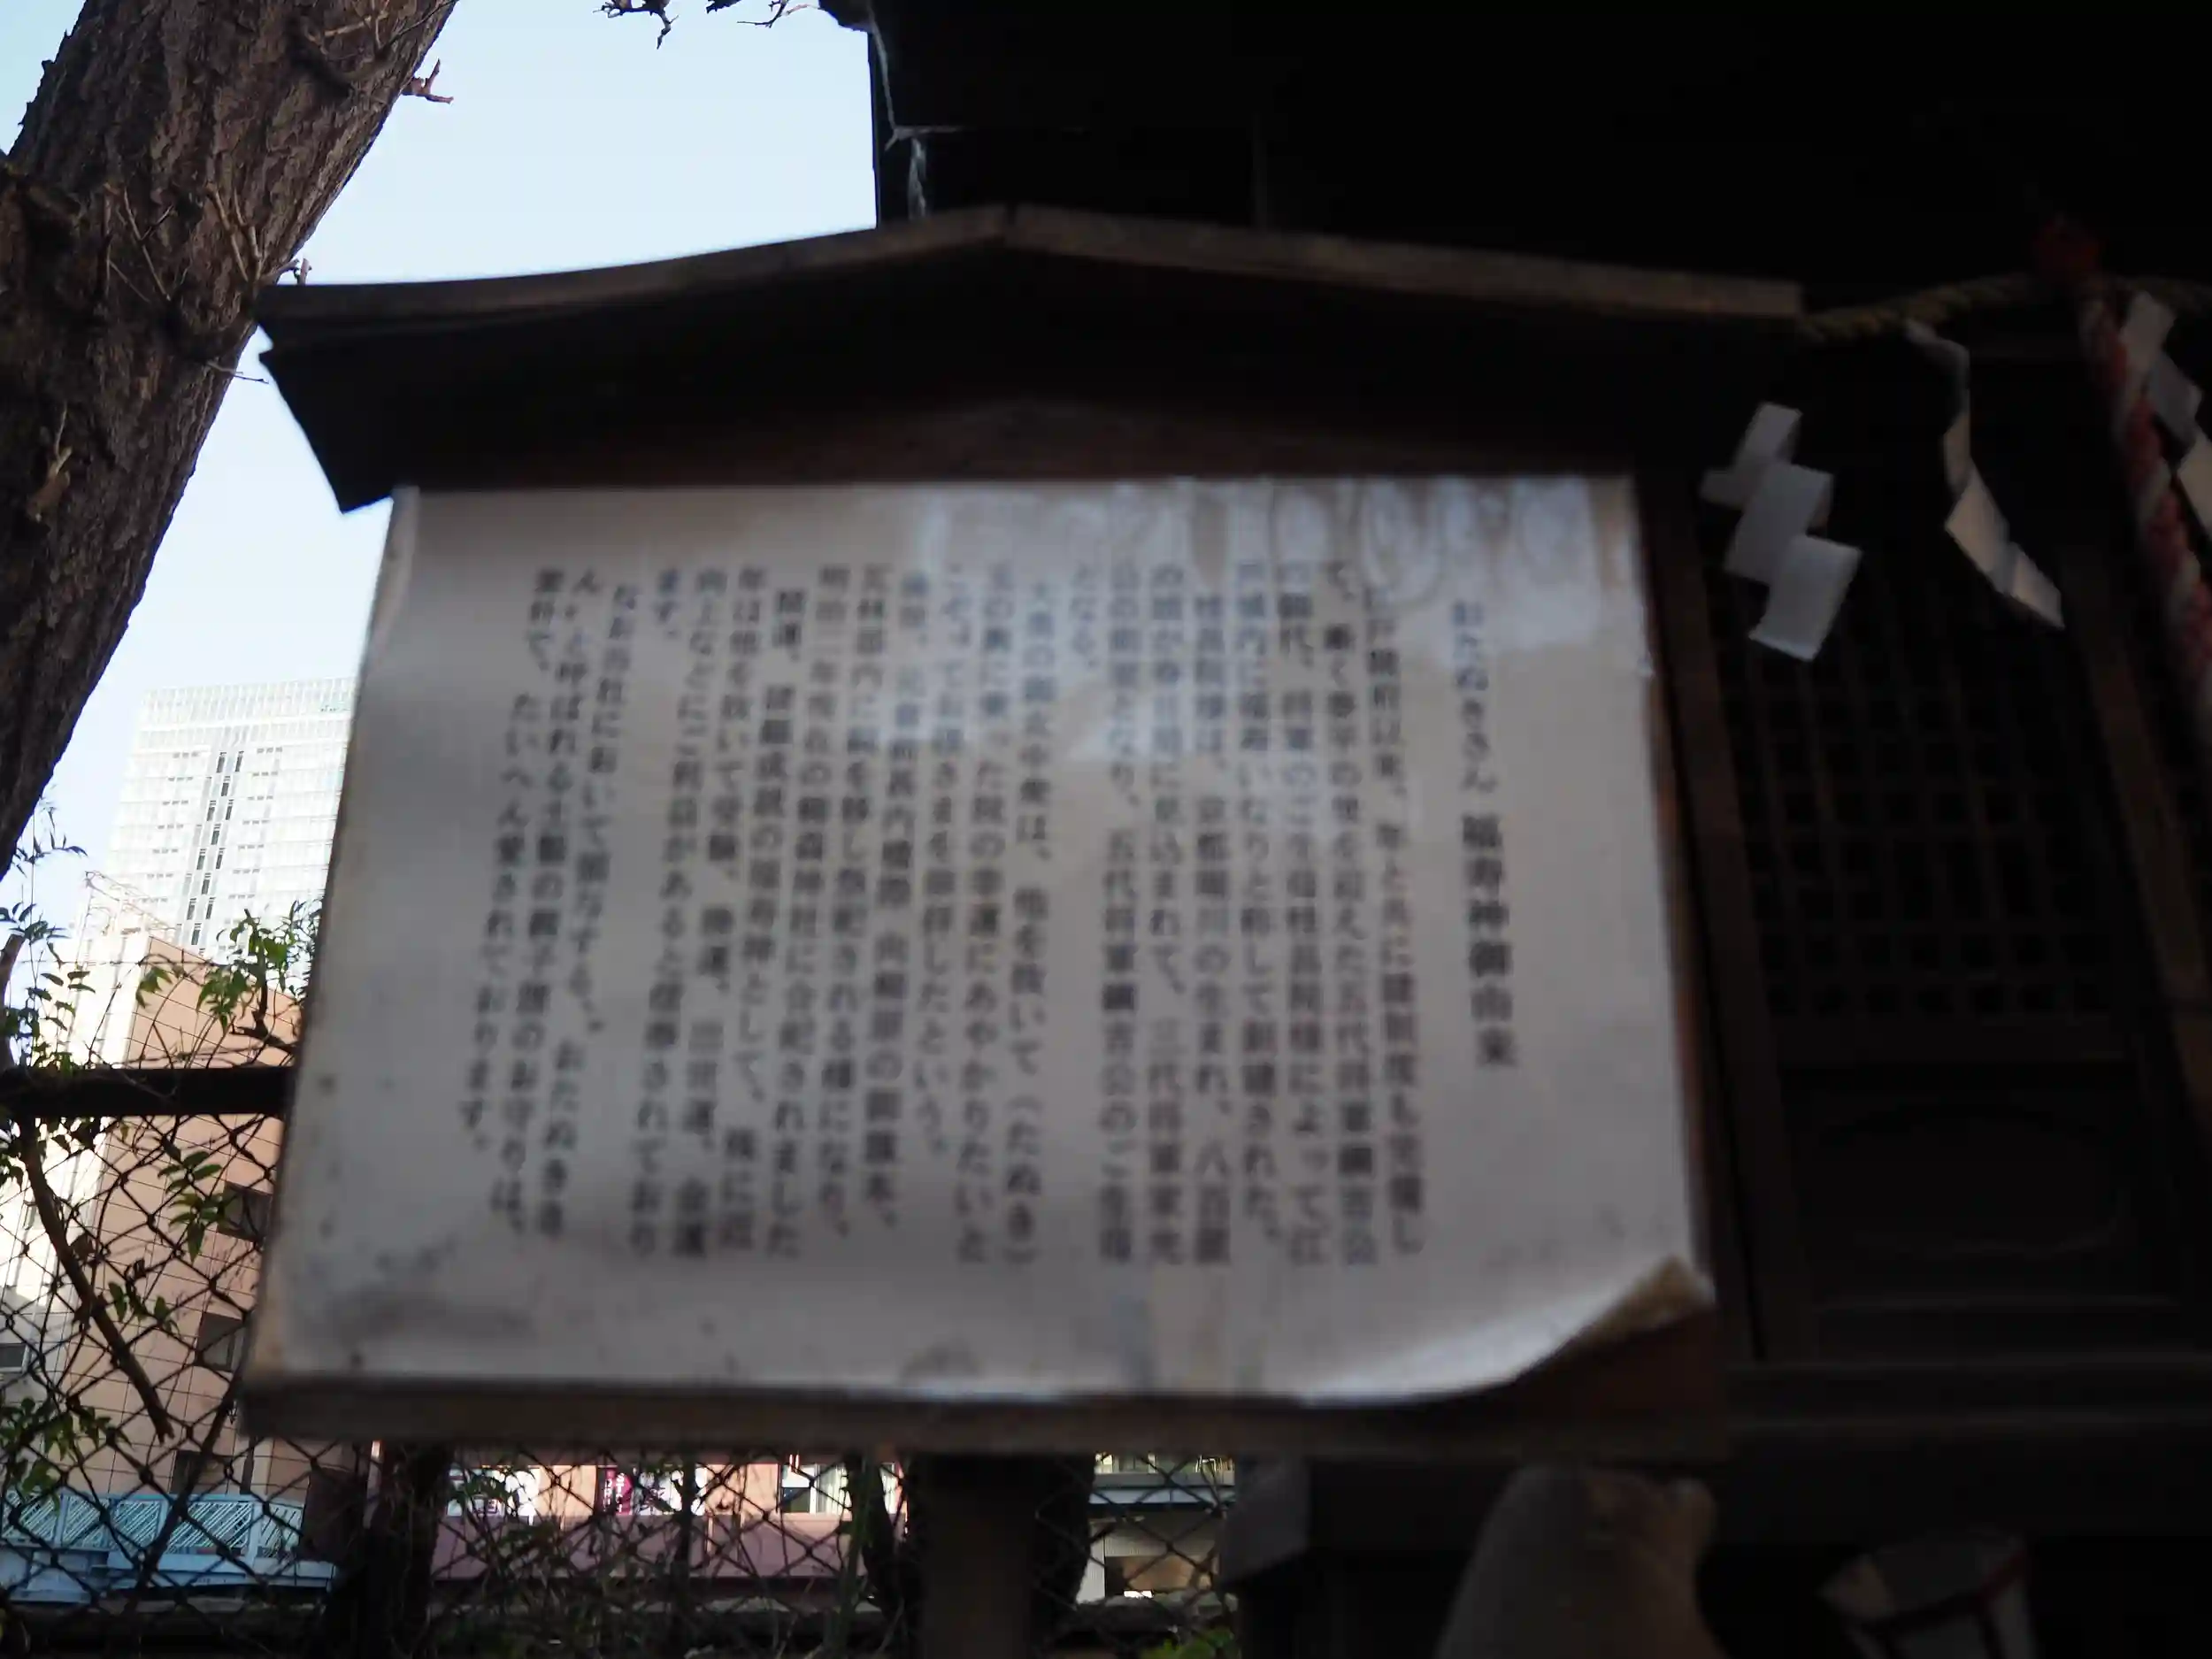 おたぬきさん 福寿神御由来
江戸開府以来、年と共に諸制度も完備し
て、漸く泰平の世を迎えた五代将軍綱吉公
の御代、将軍のご生母桂昌院様によって江
戸城内に福寿いなりと称して創建された。
桂昌院様は、京都堀川の生まれ、八百屋
の娘が春日局に見込まれて、三代将軍家光
公の側室となり、五代将軍綱吉公のご生母
となる。
大奥の御女中衆は、他を抜いて(たぬき)
玉の輿に乗った院の幸運にあやかりたいと
こぞっておたぬきさまを崇拝したという。
後世、元倉前長内櫓際 向柳原の御籏本、
瓦林邸内に祠を移し祭祀される様になり、
明治二年現在の柳森神社に合祀されました
開運、諸願成就の福寿神として、殊に近
年は他を抜いて受験、勝運、出世運、金運
向上などにご利益があると信奉されており
ます。
なお当社において頒布する、"おたぬきさ
ん"と呼ばれる土製の親子狸のお守りは、
素朴で、たいへん愛されております。